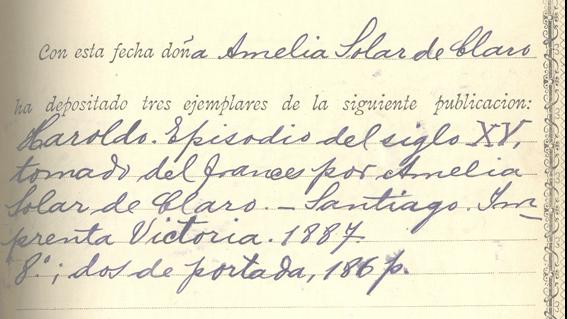 Con esta fecha doña Amelia Solar de Claro
ha depositado tres ejemplares de la siguiente publicacion:
Haroldo. Episodio del siglo XV,
tomado del frances por Amelia
Solar de Claro. — Santiago. Im-
prenta Victoria. 1887.
8.°; dos de portada, 186 p.